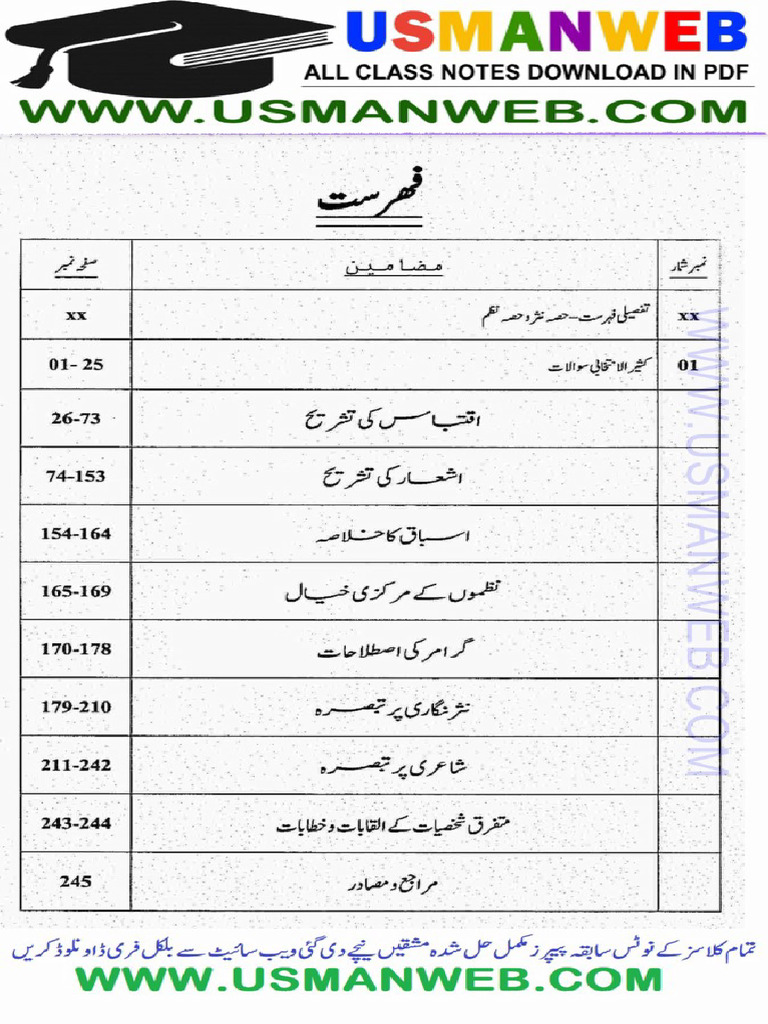 USMANWEB
ALL CLASS NOTES DOWNLOAD IN PDF
WWW.USMANWEB.COM
فہرست
نمبر شمار مضامین صفحہ نمبر
xx تفصیلی فہرست - حصہ نثر و حصہ نظم xx
01 کثیر الانتخابی سوالات 01- 25
اقتباس کی تشریح 26-73
اشعار کی تشریح 74-153
اسباق کا خلاصہ 154-164
نظموں کے مرکزی خیال 165-169
گرامر کی اصطلاحات 170-178
نثر نگاری پر تبصرہ 179-210
شاعری پر تبصرہ 211-242
متفرق شخصیات کے القابات و خطابات 243-244
مراجع و مصادر 245
WWW.USMANWEB.COM
تمام کلاسز کے نوٹس سابقہ پیپرز مکمل حل شدہ مشقیں نیچے دی گئی ویب سائیٹ سے بلکل فری ڈاونلوڈ کریں
WWW.USMANWEB.COM